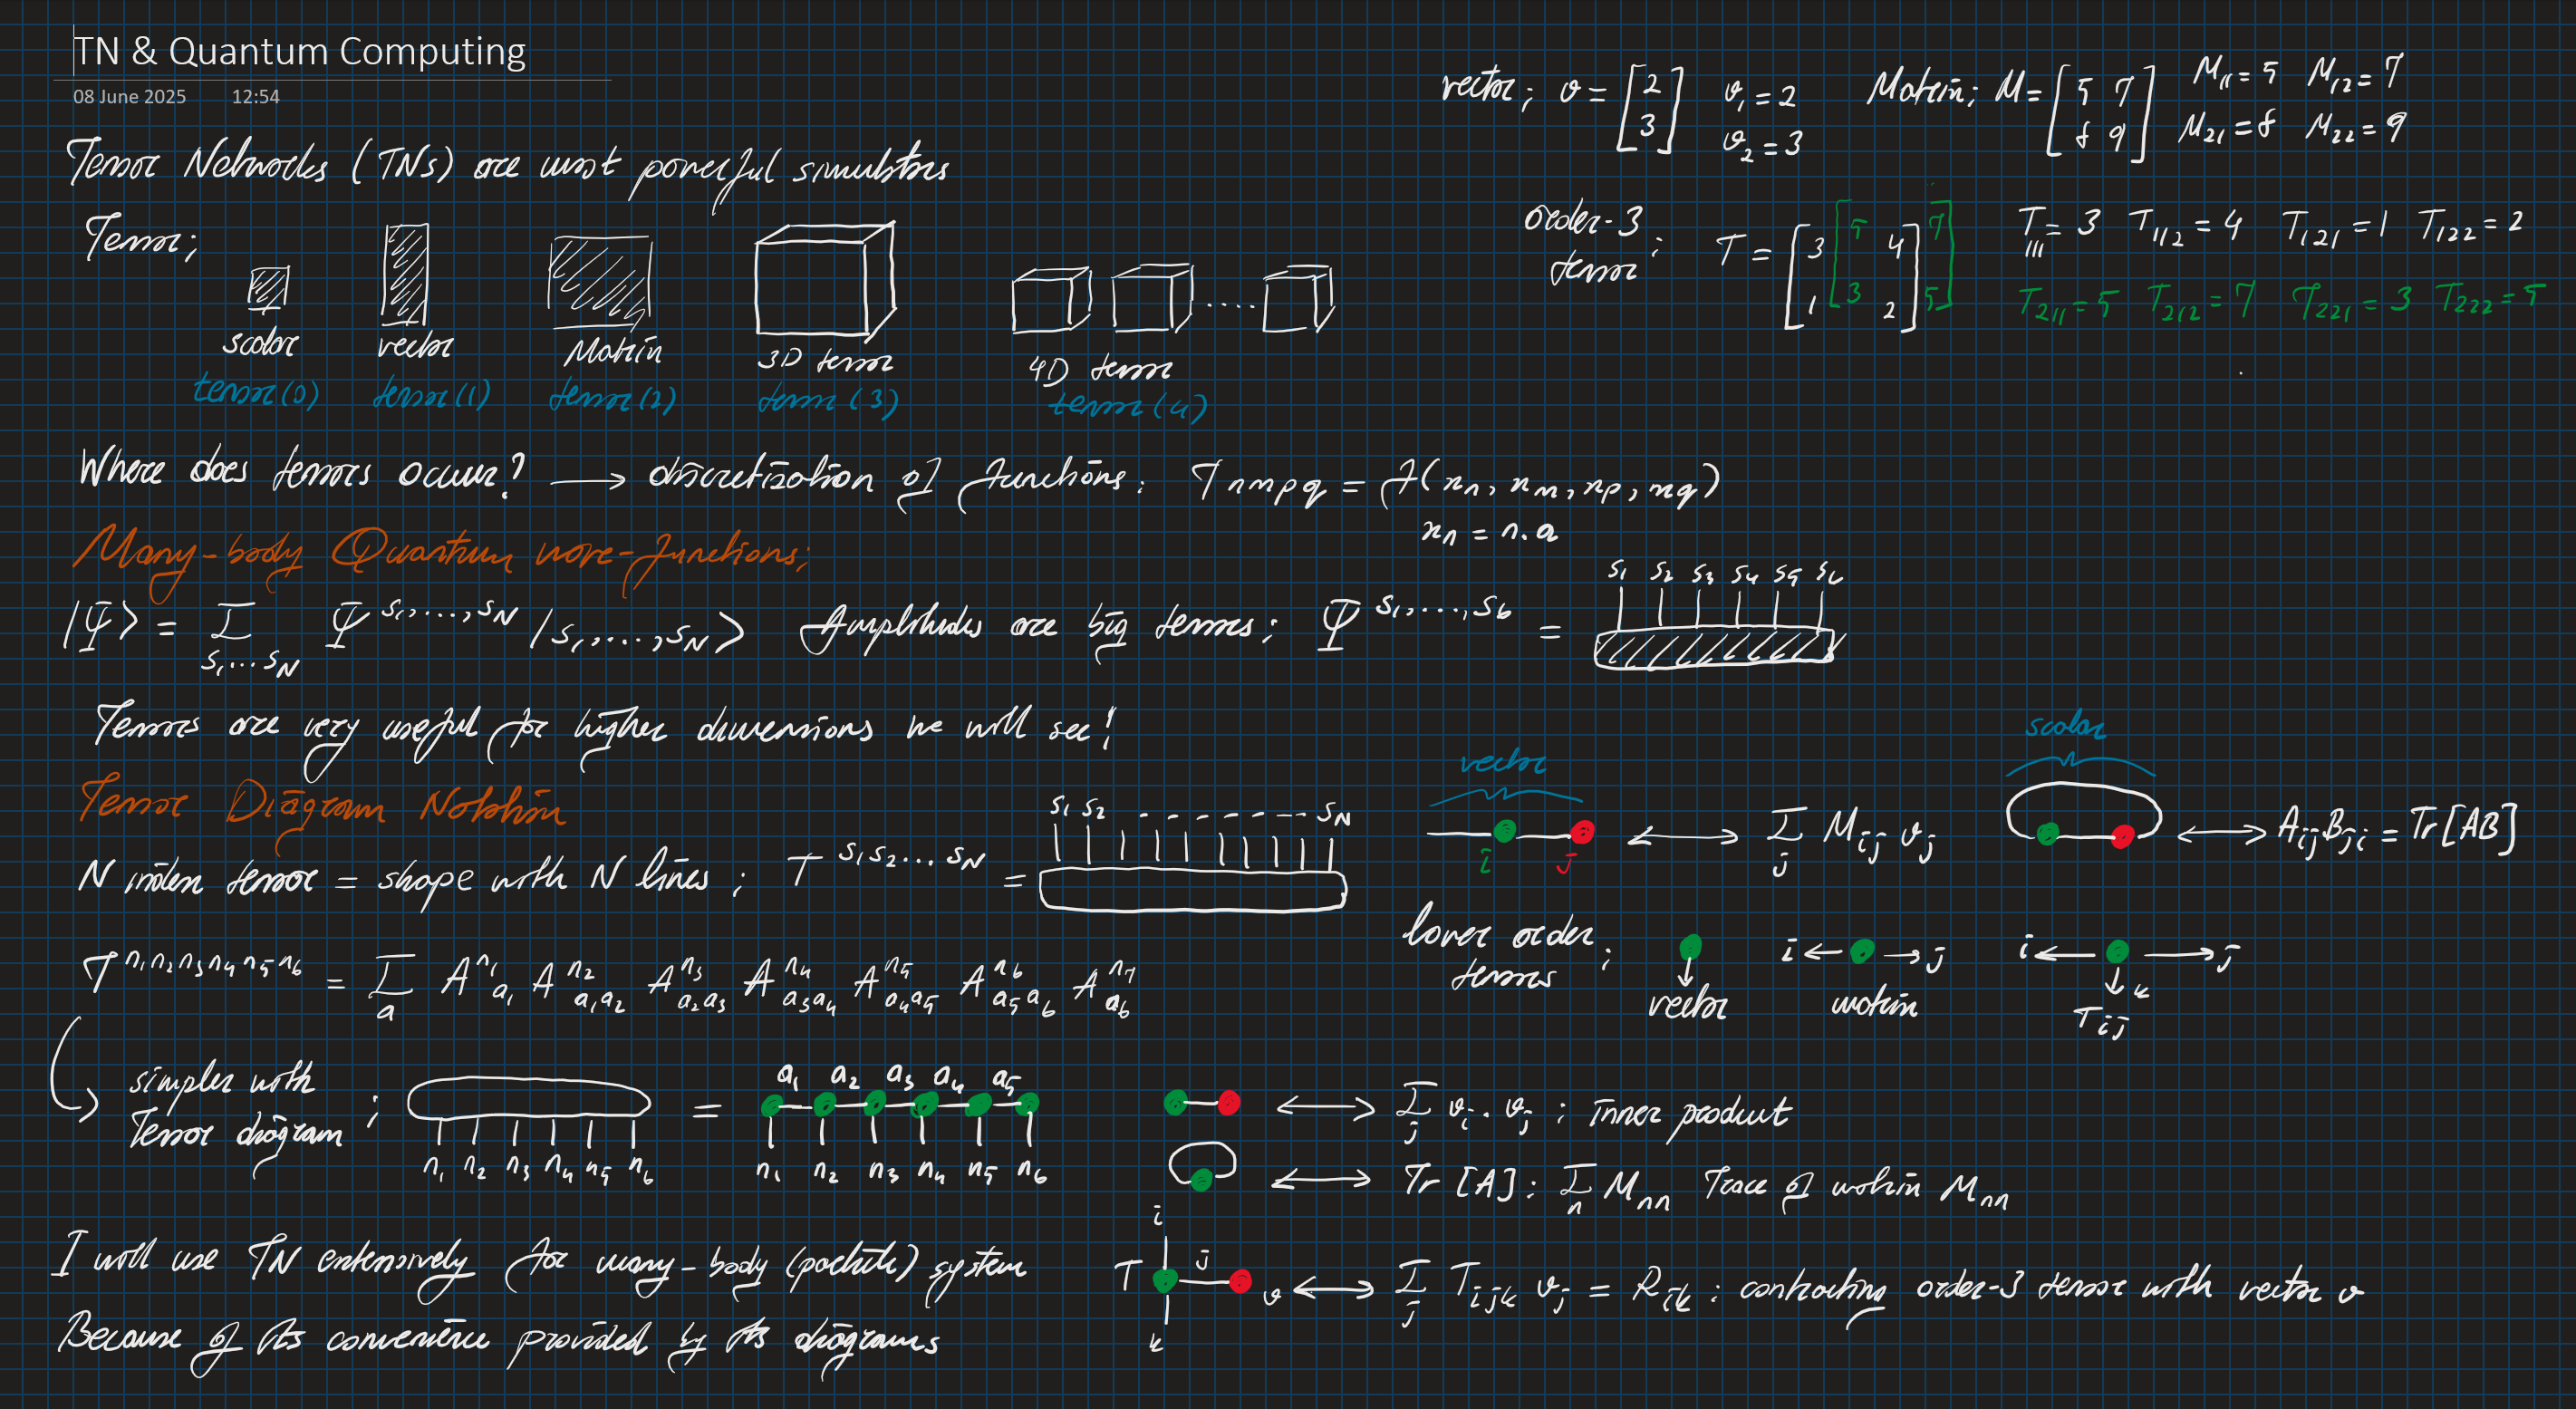 TN & Quantum Computing
08 June 2025 12:54
Tensor Networks (TNs) are most powerful simulators
Tensor;
scalar vector Matrix 3D tensor 4D tensor
tensor(0) tensor(1) tensor(2) tensor(3) tensor(4)
vector; v = [2 3] v₁ = 2 v₂ = 3
Matrix; M = [5 7 8 9] M₁₁ = 5 M₁₂ = 7 M₂₁ = 8 M₂₂ = 9
order-3 tensor: T = [3 4 1 2] [5 7 3 5]
T₁₁₁ = 3 T₁₁₂ = 4 T₁₂₁ = 1 T₁₂₂ = 2
T₂₁₁ = 5 T₂₁₂ = 7 T₂₂₁ = 3 T₂₂₂ = 5
Where does tensors occur? → discretization of functions: T nmpq = f(xn, xm, xp, xq)
xn = n.a
Many-body Quantum wave-functions;
|Ψ> = Σ s₁...sN Ψ^s₁,...,sN |s₁,...,sN> Amplitudes are big tensors: Ψ^s₁,...,s₆ =
s₁ s₂ s₃ s₄ s₅ s₆
Tensors are very useful for higher dimensions we will see!
Tensor Diagram Notation
N index tensor = shape with N lines; T^s₁s₂...sN =
s₁ s₂ - - - - - - - sN
T^n₁n₂n₃n₄n₅n₆ = Σa A^n₁a₁ A^n₂a₁a₂ A^n₃a₂a₃ A^n₄a₃a₄ A^n₅a₄a₅ A^n₆a₅a₆ A^n₇a₆
simpler with
Tensor diagram ;
n₁ n₂ n₃ n₄ n₅ n₆
=
a₁ a₂ a₃ a₄ a₅
n₁ n₂ n₃ n₄ n₅ n₆
I will use TN extensively for many-body (particle) system
Because of its convenience provided by its diagrams
vector
i j ↔ Σj Mij vj
scalar
↔ AijBji = Tr[AB]
lower order
tensors ;
vector
i ← → j
matrix
i ← → j
k
Tij
↔ Σj vi . vj : inner product
↔ Tr [A] : Σn Mnn Trace of matrix Mnn
i
T j v ↔ Σj Tijk vj = Rik : contracting order-3 tensor with vector v
k